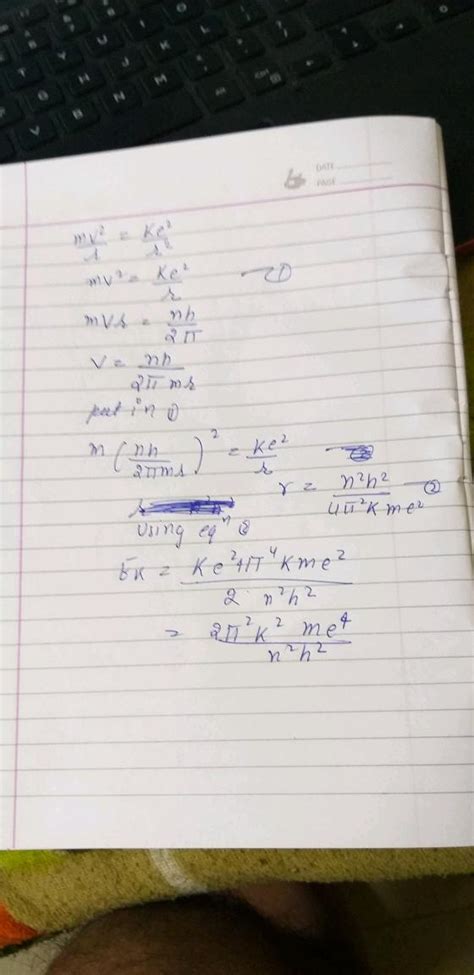 DATE
PAGE
mv²/r = Ke²/r²
mv² = Ke²/r —①
mvr = nh/2π
v = nh/2πmr
put in ①
m(nh/2πmr)² = Ke²/r
r = n²h²/4π²Kme² —②
Using eqⁿ ②
Ek = Ke²4π⁴Kme²/2 n²h²
= 2π²K² me⁴/n²h²